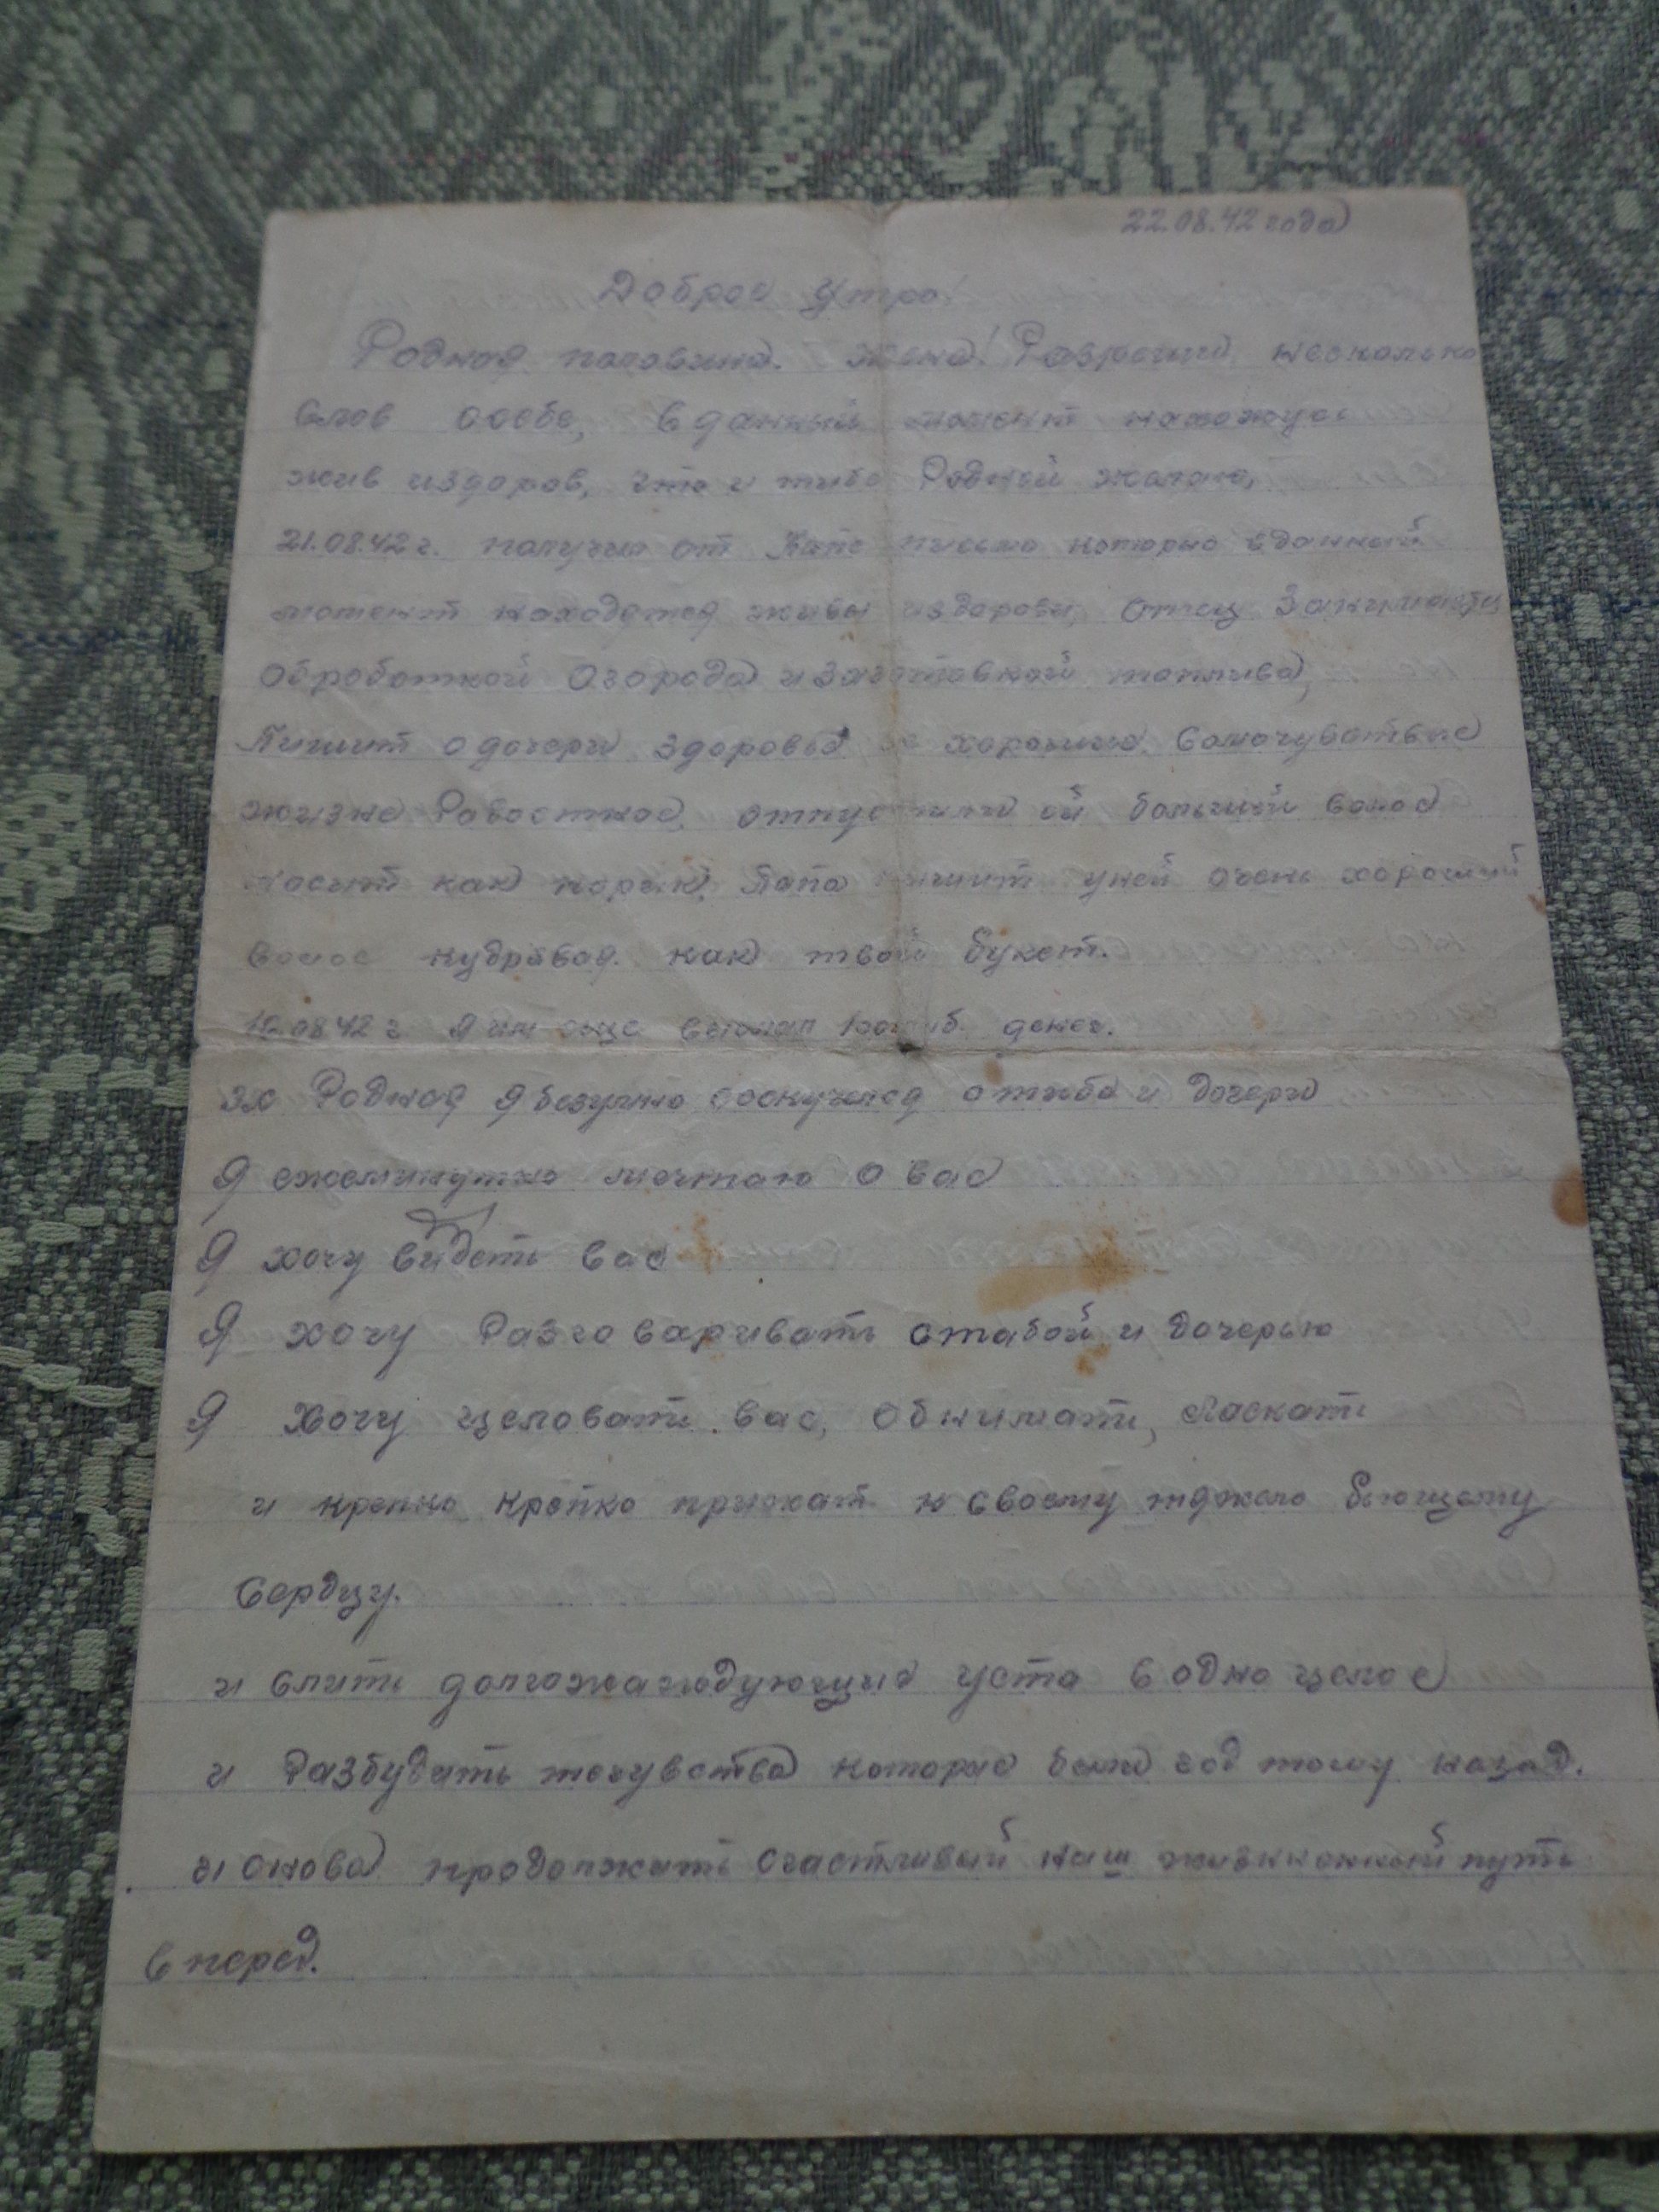 22.08.42 года
Доброе утро!
Родная половина. Жена! Разреши несколько
слов осебе, вданный момент нахожусь
жив издоров, что и тибе Родной желаю,
21.08.42 г. получил от Папе письмо которые вданный
момент находятся живы издоровы, Отец Занимается
Обработкой Огорода изаготовкой топлива,
Пишит одочери здоровья хорошие. Самочувствие
жизне Радостное. отпустили ей большии волос
носит как Папа пишит уней очень хороший
волос кудрявая. как твой букет.
08 42 г Я им еще выслал руб. денег.
эх Родная Ябезумно соскучился о тибе и дочери
Я ежеминутно мечтаю о вас
Я хочу видеть вас
Я хочу Разговаривать стабой и дочерью
Я Хочу целовать вас, Обнимать, Ласкать
и крепко крепко прижат к своему тяжело бьющему
Сердцу.
и слить долгожаждующие уста в одно целое
и Разбудить течувства которые были год тому назад.
и снова продолжить счастливый наш жизнинный путь
вперед.